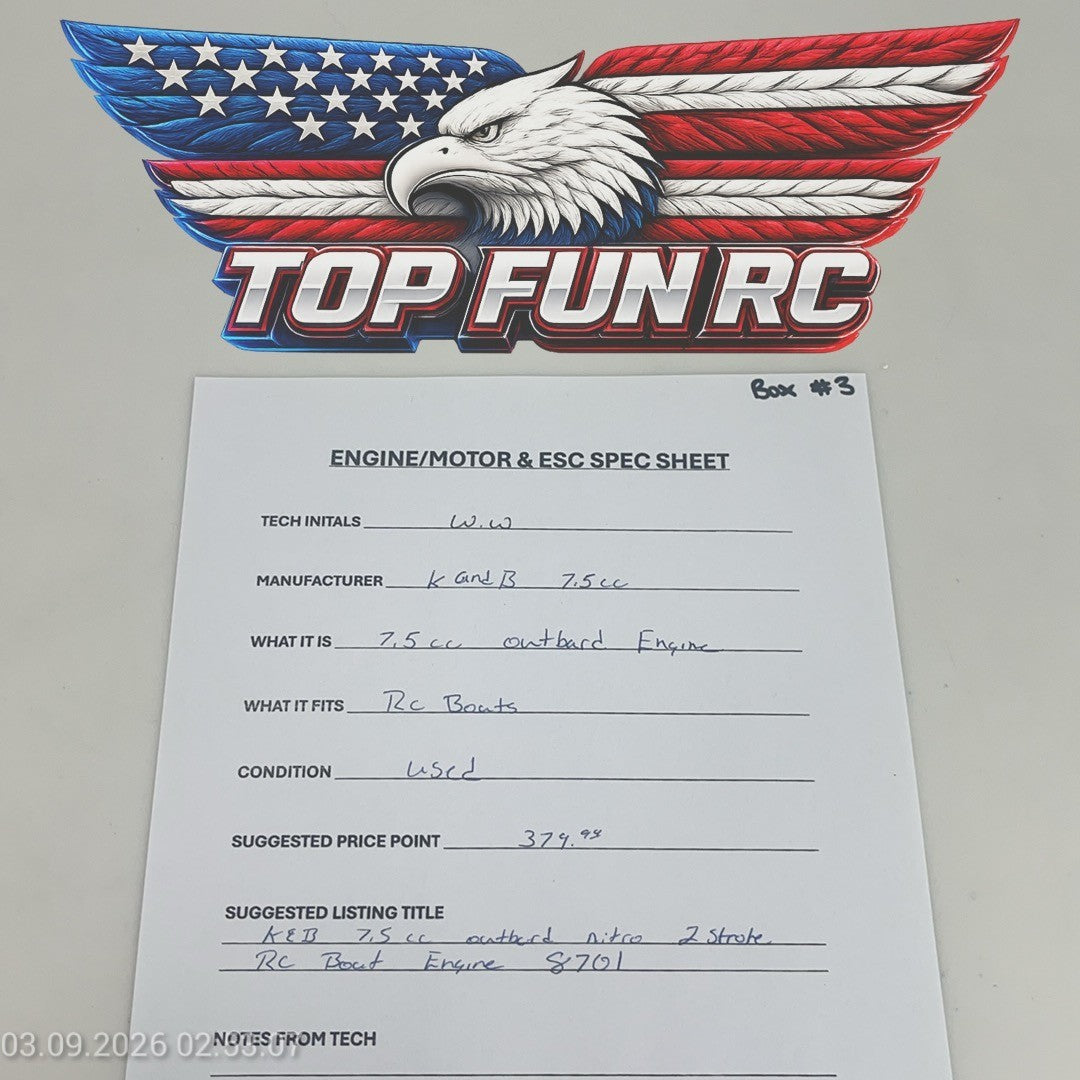 TOP FUN RC
Box #3
ENGINE/MOTOR & ESC SPEC SHEET
TECH INITALS W.W
MANUFACTURER K and B 7.5cc
WHAT IT IS 7.5 cc outbard Engine
WHAT IT FITS Rc Boats
CONDITION used
SUGGESTED PRICE POINT
SUGGESTED LISTING TITLE
K&B 7.5 cc outbard nitro 2 Stroke
RC Boat Engine 8701
NOTES FROM TECH
03.09.2026